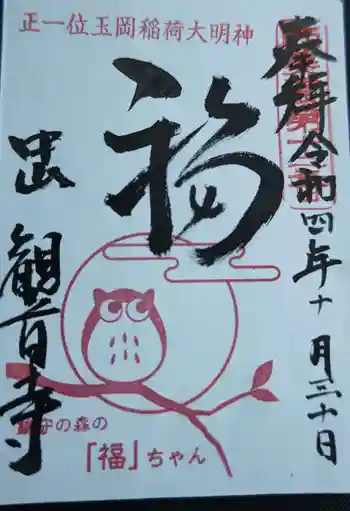 正一位玉岡稲荷大明神
奉拝
令和四年十月三十日
福
出
観音寺
鎮守の森の
「福」ちゃん